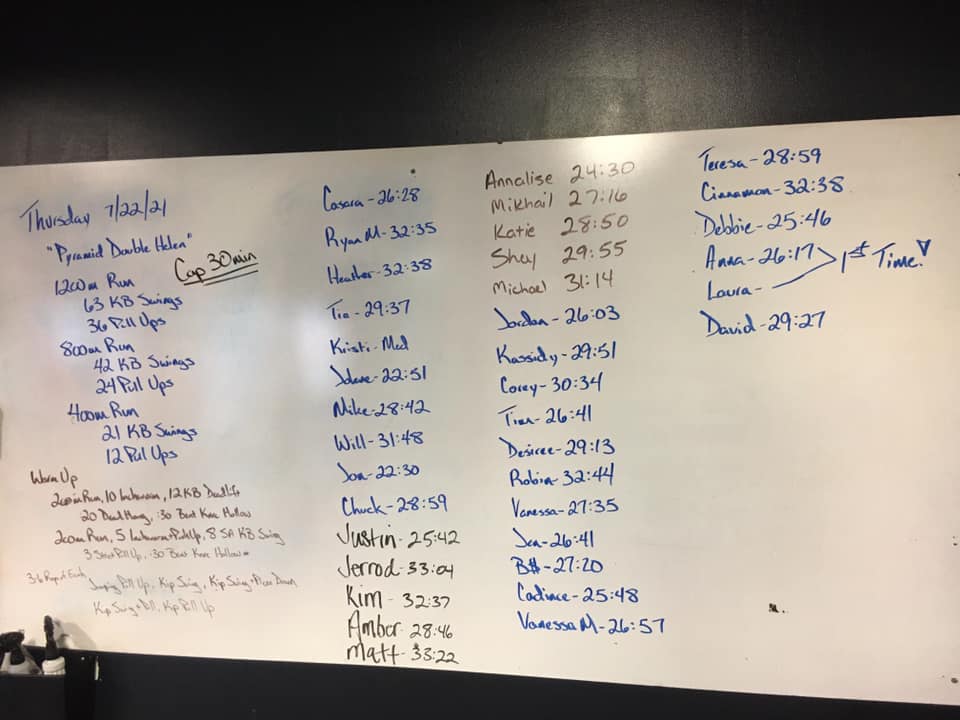 Thursday 7/22/21
"Pyramid Double Helen"
Cap 30min
1200m Run
63 KB Swings
36 Pull Ups
800m Run
42 KB Swings
24 Pull Ups
400m Run
21 KB Swings
12 Pull Ups
Warm Up
200m Run, 10 Inchworm, 12 KB Deadlift
20 Dead Hang, :30 Bent Knee Hollow
200m Run, 5 Inchworm+PushUp, 8 SA KB Swing
3 Strict Pull Up, :30 Bent Knee Hollow
3-6 Reps of Each
Jumping Pull Up, Kip Swing, Kip Swing+Place Down
Kip Swing+Pull, Kip Pull Up
Casara-26:28
Ryan M-32:35
Heather-32:38
Tia-29:37
Kristi-Med
22:51
Mike-28:42
Will-31:48
Jon-22:30
Chuck-28:59
Justin-25:42
Jerrod-33:04
Kim-32:37
Amber-28:46
Matt-33:22
Annalise 24:30
Mikhail 27:16
Katie 28:50
Shey 29:55
Michael 31:14
Jordan-26:03
Kassidy-29:51
Corey-30:34
Tim-26:41
Desiree-29:13
Robin-32:44
Vanessa-27:35
Jen-26:41
B#-27:20
Cadince-25:48
Vanessa M-26:57
Teresa-28:59
Cinnamon-32:38
Debbie-25:46
Anna-26:17
1st Time!
Laura-
David-29:27